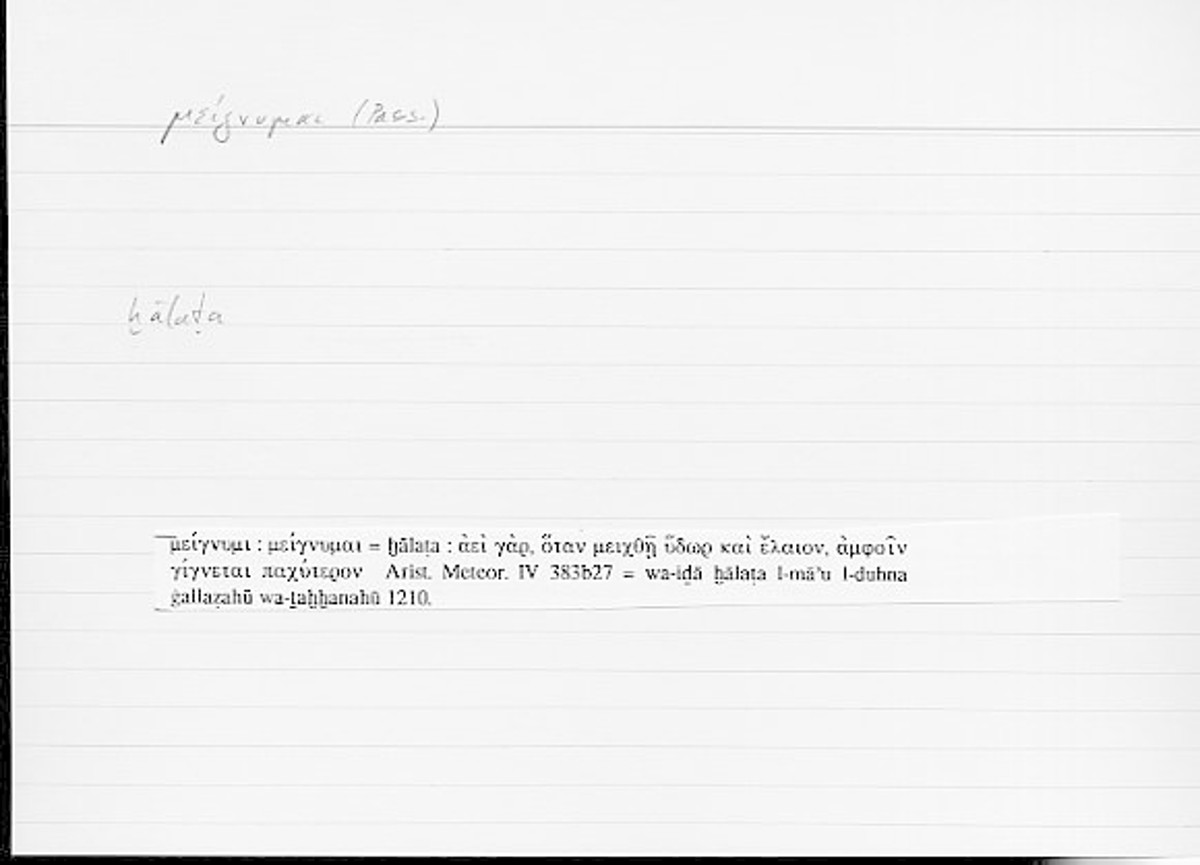 μείγνυμαι (Pass.)
ḫālaṭa
μείγνυμι : μείγνυμαι = ḫālaṭa : ἀεὶ γὰρ, ὅταν μειχθῇ ὕδωρ καὶ ἔλαιον, ἀμφοῖν
γίγνεται παχύτερον Arist. Meteor. IV 383b27 = wa-iḏā ḫālaṭa l-mā’u l-duhna
ġallaẓahū wa-ṯaḫḫanahū 1210.